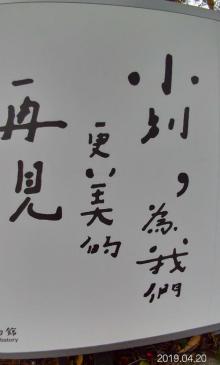 小別，為我們
更美的
再見
館
history
2019.04.20